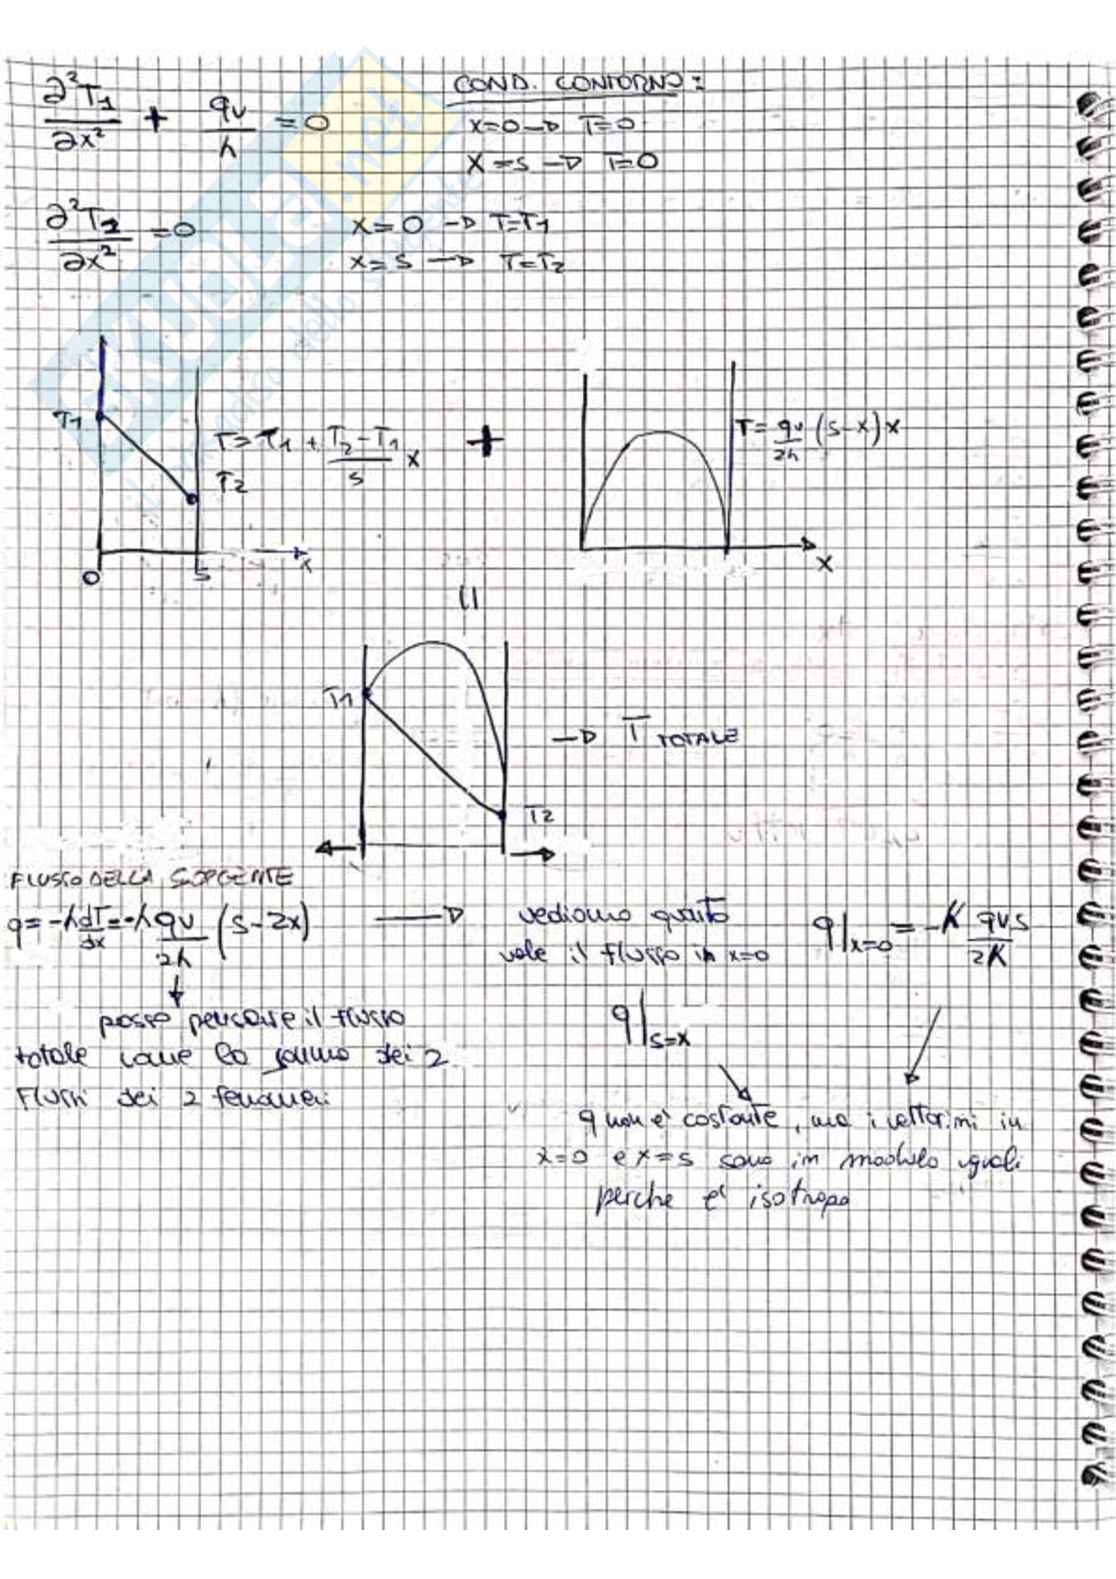 ∂²T1/∂x² + qv/λ = 0
COND. CONTORNO:
x=0 → T=0
x=s → T=0
∂²T2/∂x² = 0
x=0 → T=T1
x=s → T=T2
T1
T = T1 + (T2-T1)/s x
T2
0
s
x
+
T = qv/2λ (s-x) x
x
T1
→ T TOTALE
T2
FLUSSO DELLA SORGENTE
q = -λ dT/dx = -λ qv/2λ (s-2x) →
vediamo quanto
vale il flusso in x=0
q|x=0 = -λ qvs/2λ
posso pensare il flusso
totale come la somma dei 2
Flussi dei 2 fenomeni
q|s=x
q non è costante, ma i vettorini in
x=0 e x=s sono in modulo uguali
perche e' isotropo